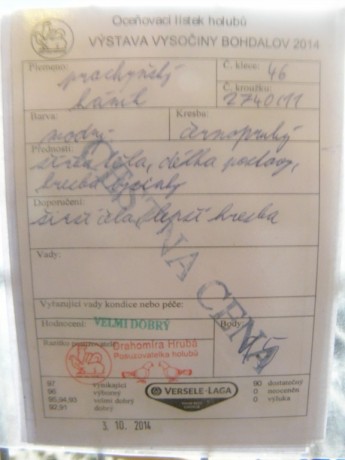 Oceňovací lístek holubů
VÝSTAVA VYSOČINY BOHDALOV 2014
Plemeno: prachyňský
káník
Č. klece: 46
Č. kroužku:
2740/11
Barva: modrý
Kresba: černopruhý
Přednosti:
šířka těla, délka postavy,
kresba
Doporučení:
širší čelo, lepší kresba
Vady:
ČESTNÁ CENA
Vyřazující vady kondice nebo péče:
Hodnocení: VELMI DOBRÝ
Body:
Drahomíra Hrubá
Posuzovatelka holubů
97 vynikající
96 výborný
95,94,93 velmi dobrý
92,91 dobrý
VERSELE-LAGA
90 dostatečný
0 neoceněn
0 výluka
3. 10. 2014